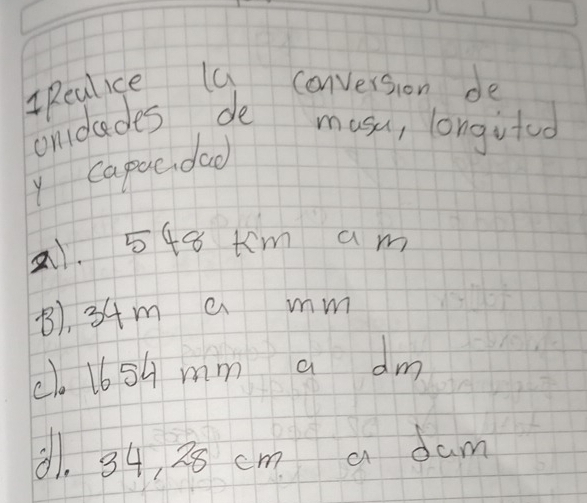 1 Realice la conversion de
unidades de masa, longitud
y capacidad
a). 548 Km a m
B). 34 m a mm
c). 1654 mm a dm
d). 34,28 cm a dam